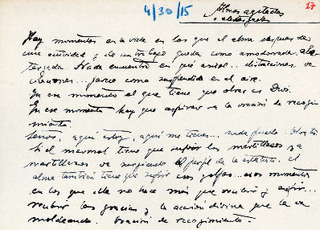 4/30/15
Almas agitadas
27
Hay momentos en la vida en los que el alma después de
una actividad y de un trabajo queda como amodorrada, ale
targada. Nada encuentra en qué asirse... distracciones, va
cilaciones... parece como suspendida en el aire.
En ese momento el que tiene que obrar es Dios.
En ese momento hay que aspirar a la oración de recogi
miento.
Señor, aquí estoy, aquí me tienes... nada puedo.
el mármol tiene que sufrir los martillazos y a
martillazos va surgiendo el perfil de la estatua. el
alma también tiene que sufrir esos golpes... esos momentos
en los que ella no hace más que recibir y sufrir...
recibir las gracias y la acción divina que la va
moldeando. Oración de recogimiento.